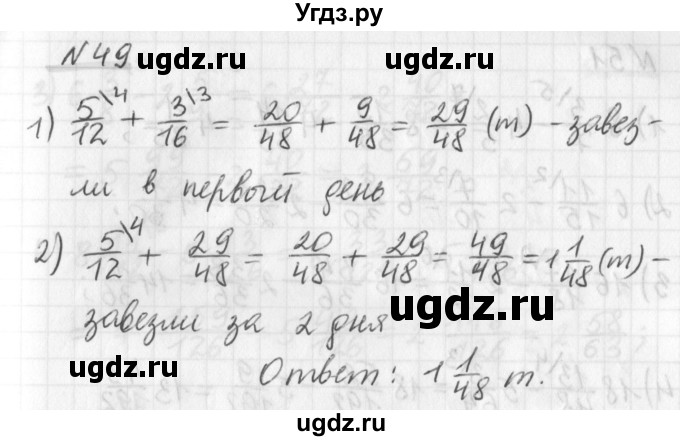 Угдз.ру
№ 49
ugdz.ru ugdz.ru
1) 5/12\4 + 3/16\3 = 20/48 + 9/48 = 29/48 (т) - завез-
ли в первый день
2) 5/12\4 + 29/48 = 20/48 + 29/48 = 49/48 = 1 1/48 (т) -
ugdz.ru
завезли за 2 дня
ugdz.ru
Ответ: 1 1/48 т.
ugdz.ru